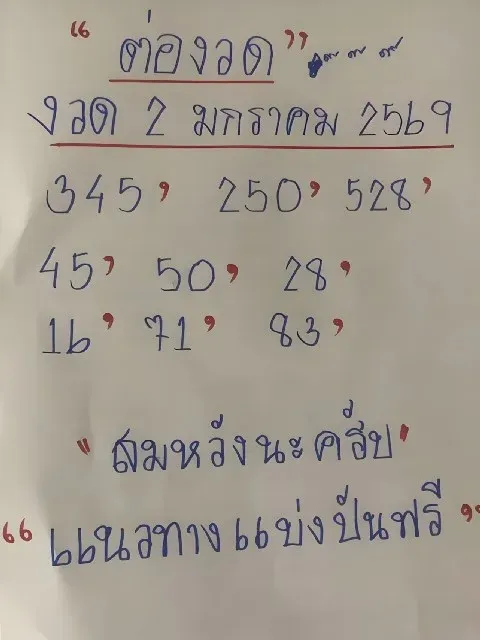 “ ต่องวด ” ๙ ๙ ๙
งวด 2 มกราคม 2569
345, 250, 528,
45, 50, 28,
16, 71, 83,
" สมหวังนะครับ "
“ แนวทางแบ่งปันฟรี ”